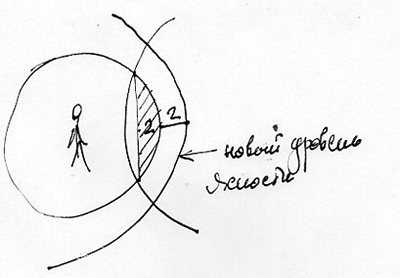 2 2
новый уровень
ясности